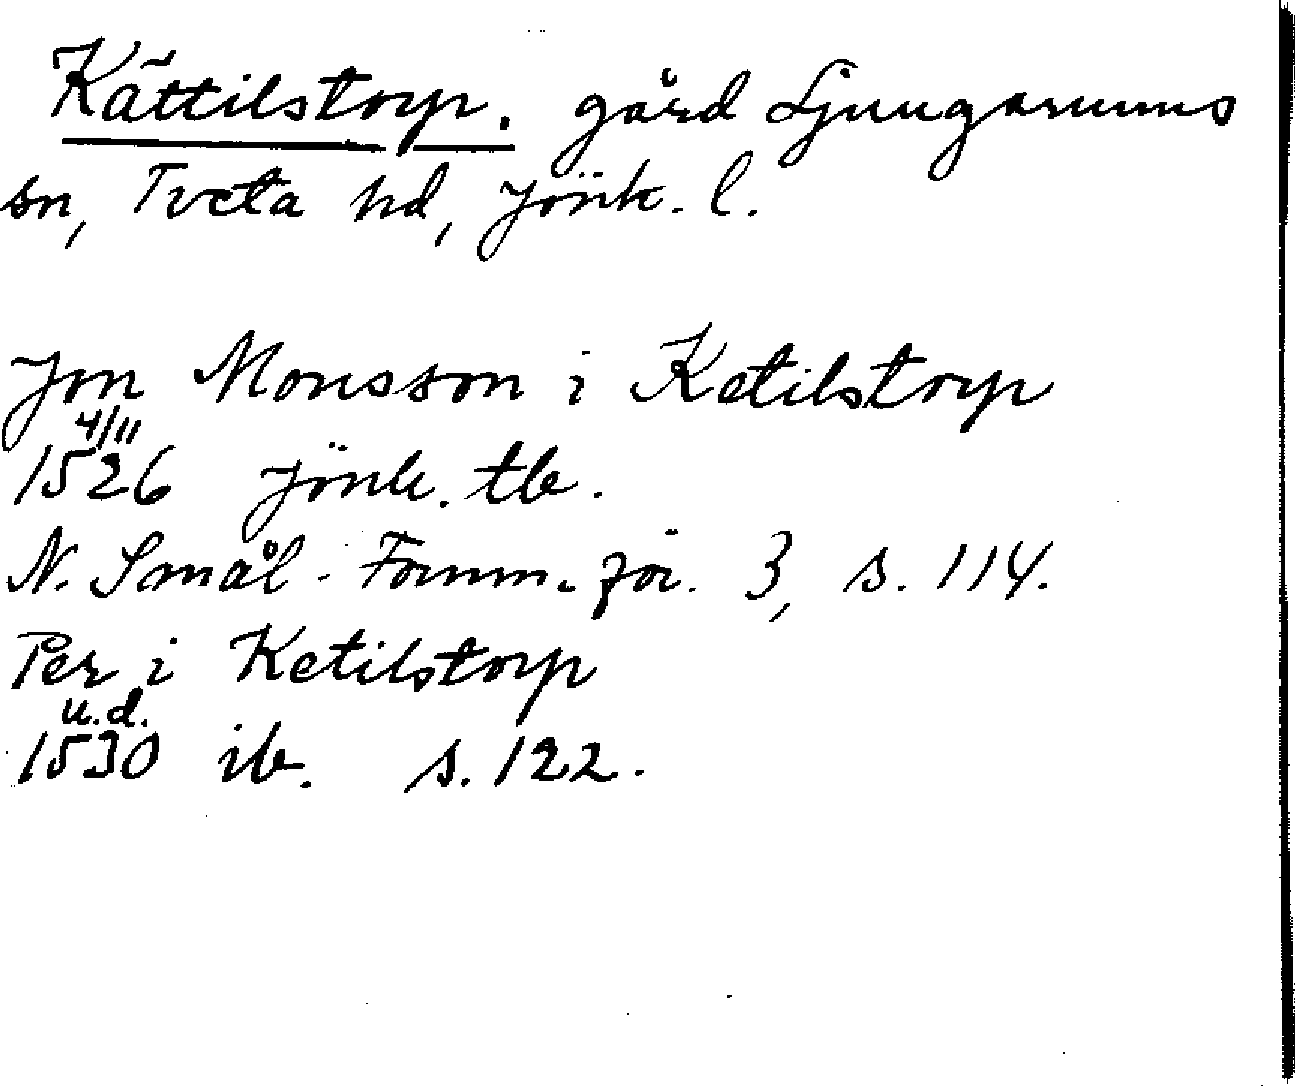 Kättilstorp. gård Ljungarums
sn, Tveta hd, Jönk. l.
Jon Monsson i Ketilstorp
4/11
1526 Jönk. tb.
N. Smål. Fornm. för. 3, s. 114.
Per i Ketilstorp
u.d.
1530 ib. s. 122.